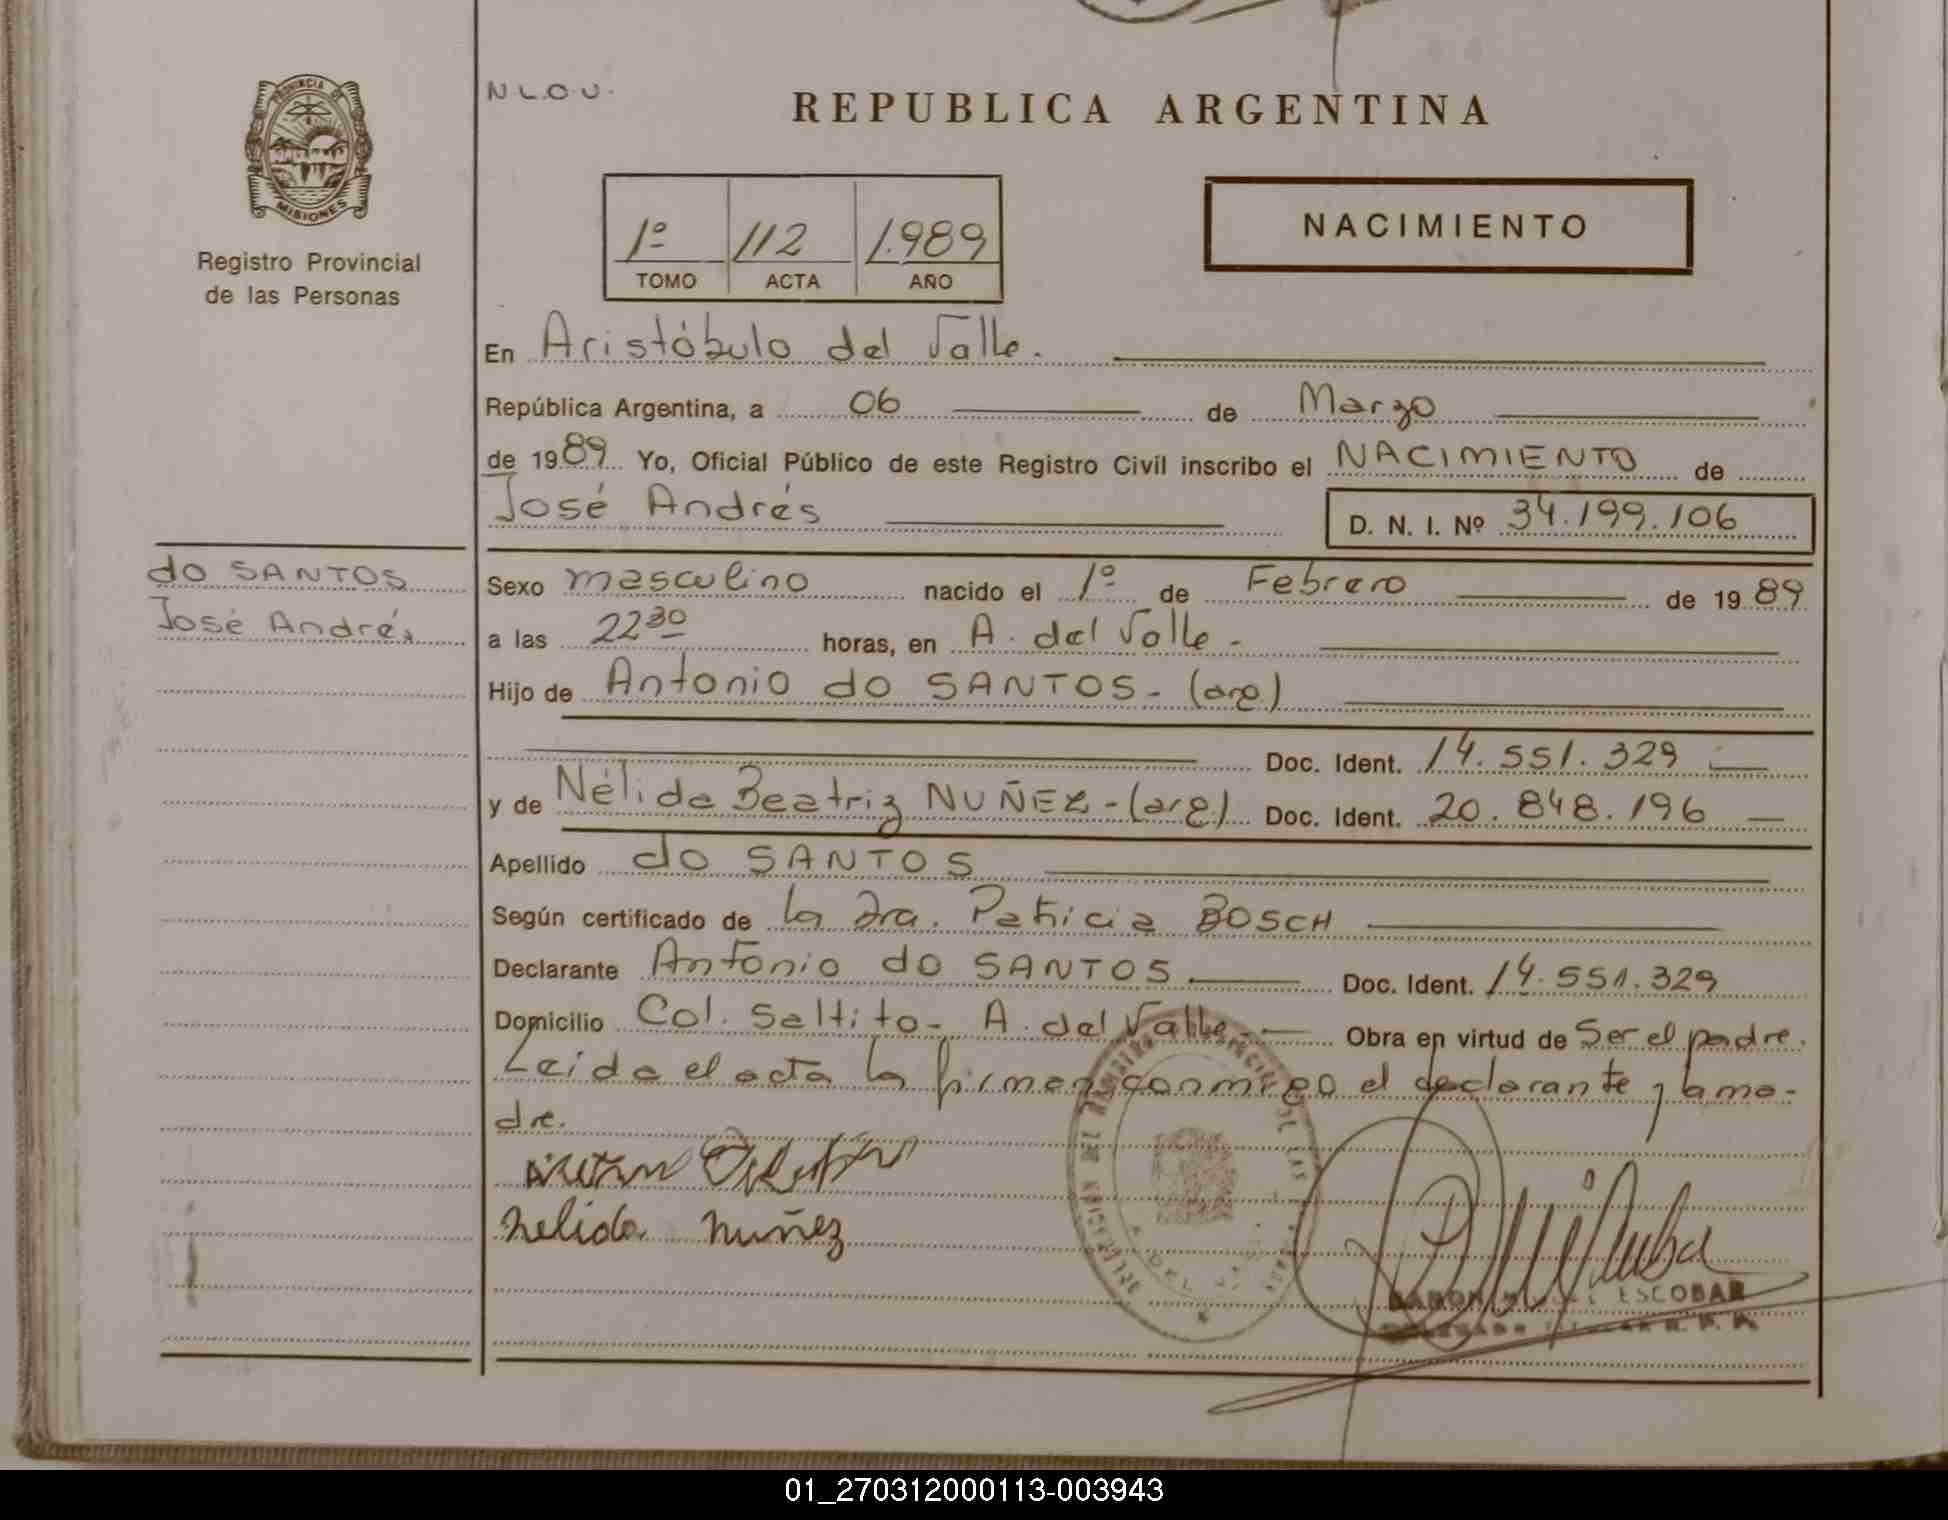 PROVINCIA DE
MISIONES
Registro Provincial
de las Personas
N.L.O.U.
REPUBLICA ARGENTINA
1º 112 1.989
TOMO ACTA AÑO
NACIMIENTO
En Aristóbulo del Valle.
República Argentina, a 06 de Marzo
de 1989 Yo, Oficial Público de este Registro Civil inscribo el NACIMIENTO de
José Andrés D. N. I. Nº 34.199.106
do SANTOS
José Andrés
Sexo masculino nacido el 1º de Febrero de 1989
a las 22 30 horas, en A. del Valle -
Hijo de Antonio do SANTOS - (arg.)
Doc. Ident. 14.551.329
y de Nélida Beatriz NUÑEZ - (arg.) Doc. Ident. 20.848.196
Apellido do SANTOS
Según certificado de la Dra. Patricia BOSCH
Declarante Antonio do SANTOS Doc. Ident. 14.551.329
Domicilio Col. Saltito - A. del Valle - Obra en virtud de Ser el padre.
Leida el acta la firman conmigo el declarante y la ma-
dre.
Nelida Nuñez
ESCOBAR
01_270312000113-003943